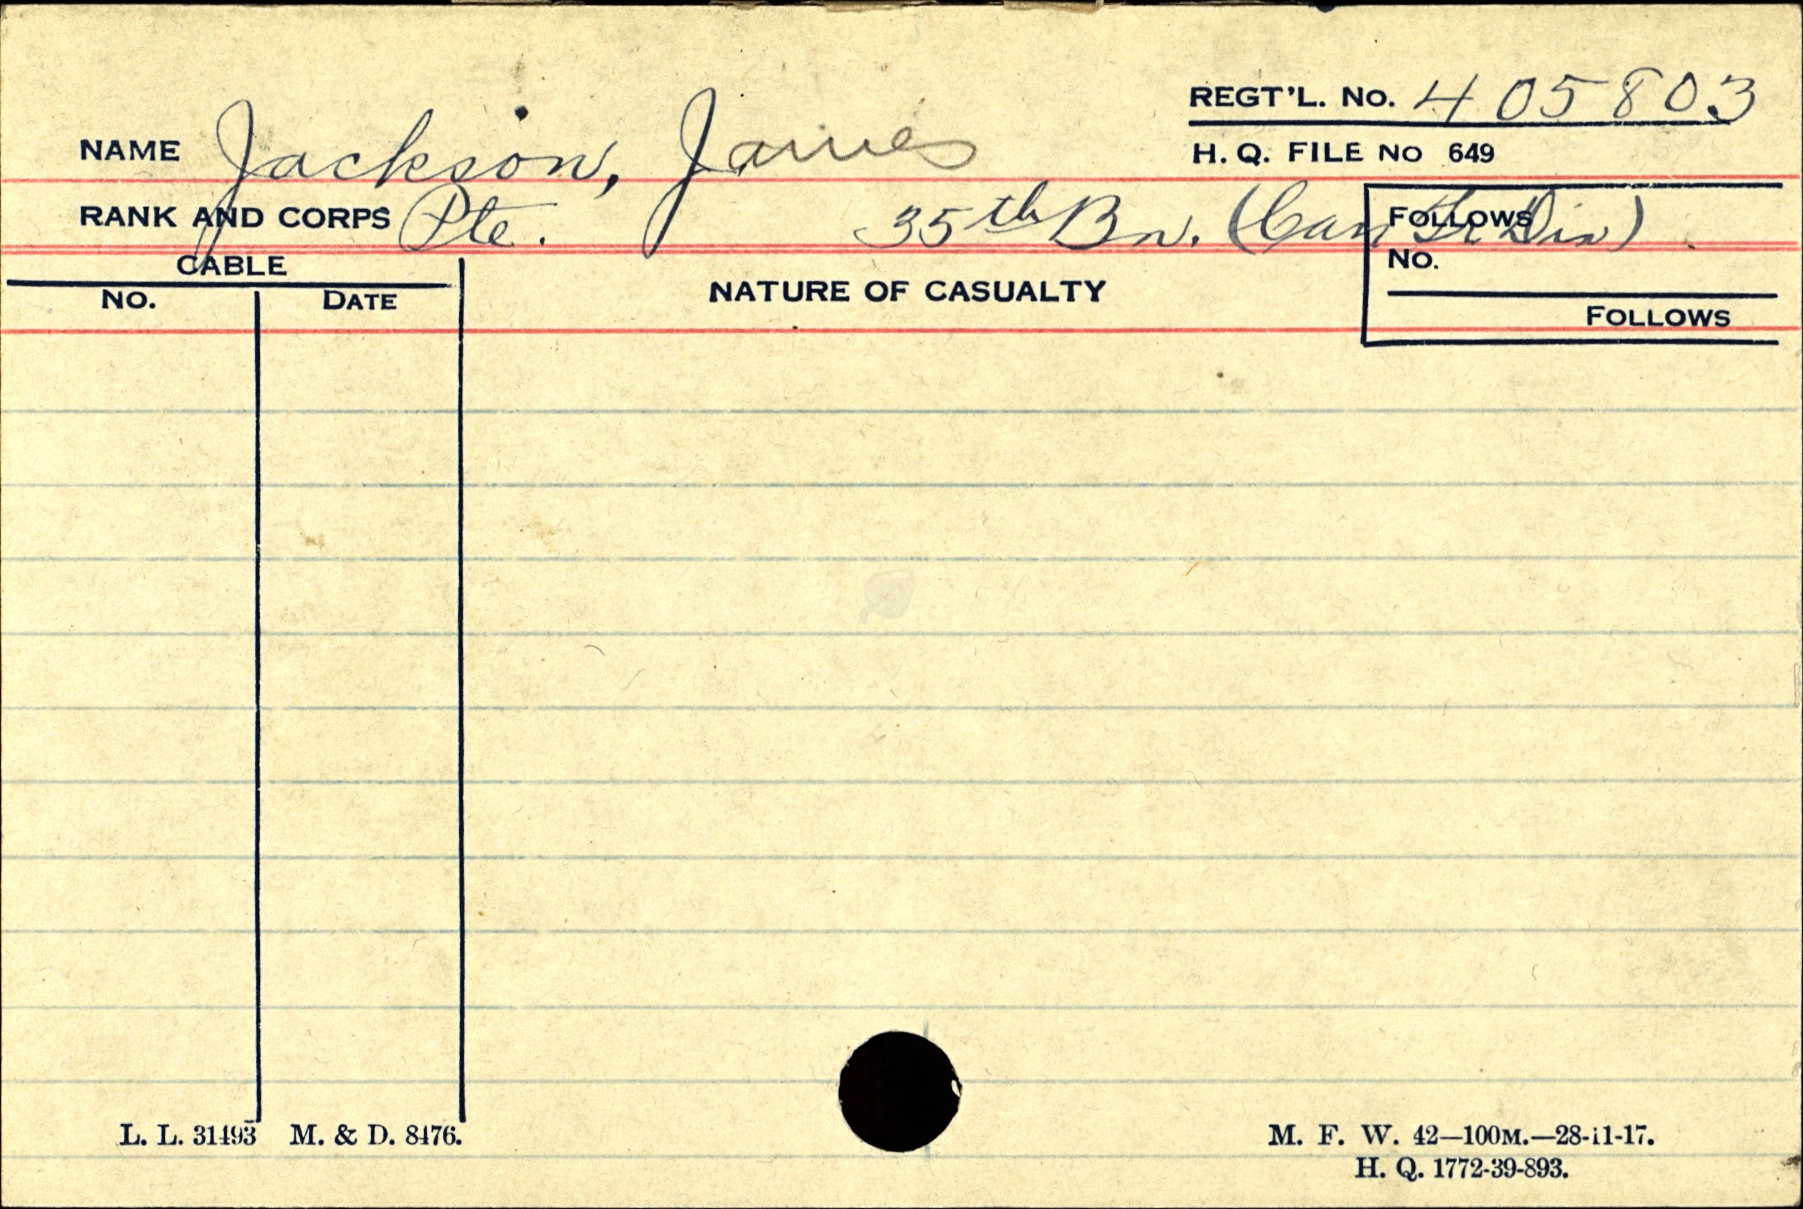 REGT'L. No. 405803
NAME Jackson, James
H. Q. FILE No 649
RANK AND CORPS Pte. 35th Bn. (Can Tr Div)
FOLLOWS
No.
CABLE
NO. DATE
NATURE OF CASUALTY
FOLLOWS
L. L. 31493 M. & D. 8476.
M. F. W. 42—100M.—28-11-17.
H. Q. 1772-39-893.